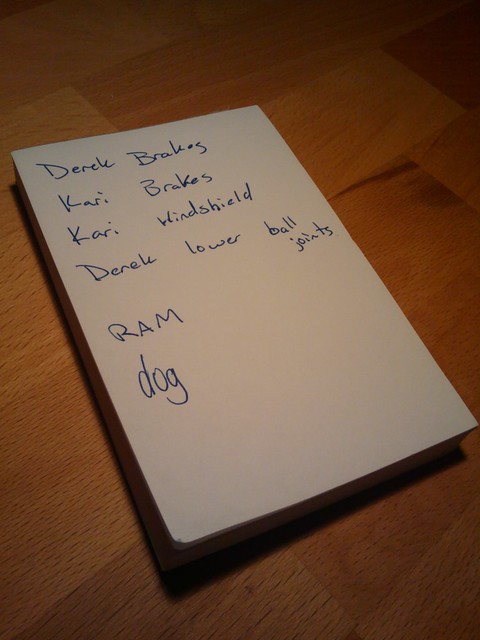 Derek Brakes
Kari Brakes
Kari Windshield
Derek lower ball
joints
RAM
dog